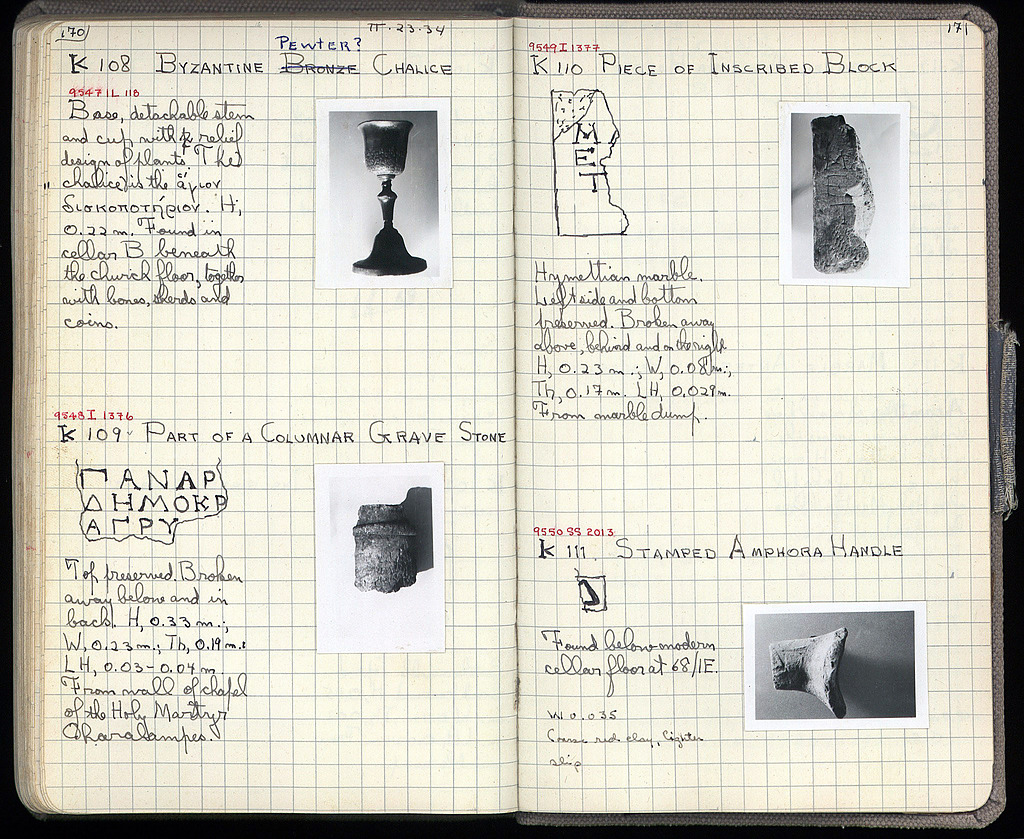 170
II·23·34
PEWTER?
K 108 BYZANTINE BRONZE CHALICE
9547 L 118
Base, detachable stem
and cup with relief
design of plants. The
chalice is the ἅγιον
δισκοποτήριον. H,
0.22 m. Found in
cellar B beneath
the church floor, together
with bones, sherds and
coins.
9548 I 1376
K 109 PART OF A COLUMNAR GRAVE STONE
ΠΑΝΑΡ
ΔΗΜΟΚΡ
ΑΓΡΥ
Top preserved. Broken
away below and in
back. H, 0.33 m.;
W, 0.23 m.; Th, 0.19 m.:
LH, 0.03-0.04 m.
From wall of chapel
of the Holy Martyr
Charalampes.
171
9549 I 1377
K 110 PIECE OF INSCRIBED BLOCK
Μ
ΕΤ
Τ
Hymettian marble.
Left side and bottom
preserved. Broken away
above, behind and on the right
H, 0.23 m.; W, 0.08 m.;
Th, 0.17 m. LH, 0.029 m.
From marble dump.
9550 SS 2013
K 111. STAMPED AMPHORA HANDLE
Found below modern
cellar floor at 68/ΙΕ.
W 0.035
Coarse red clay, lighter
slip